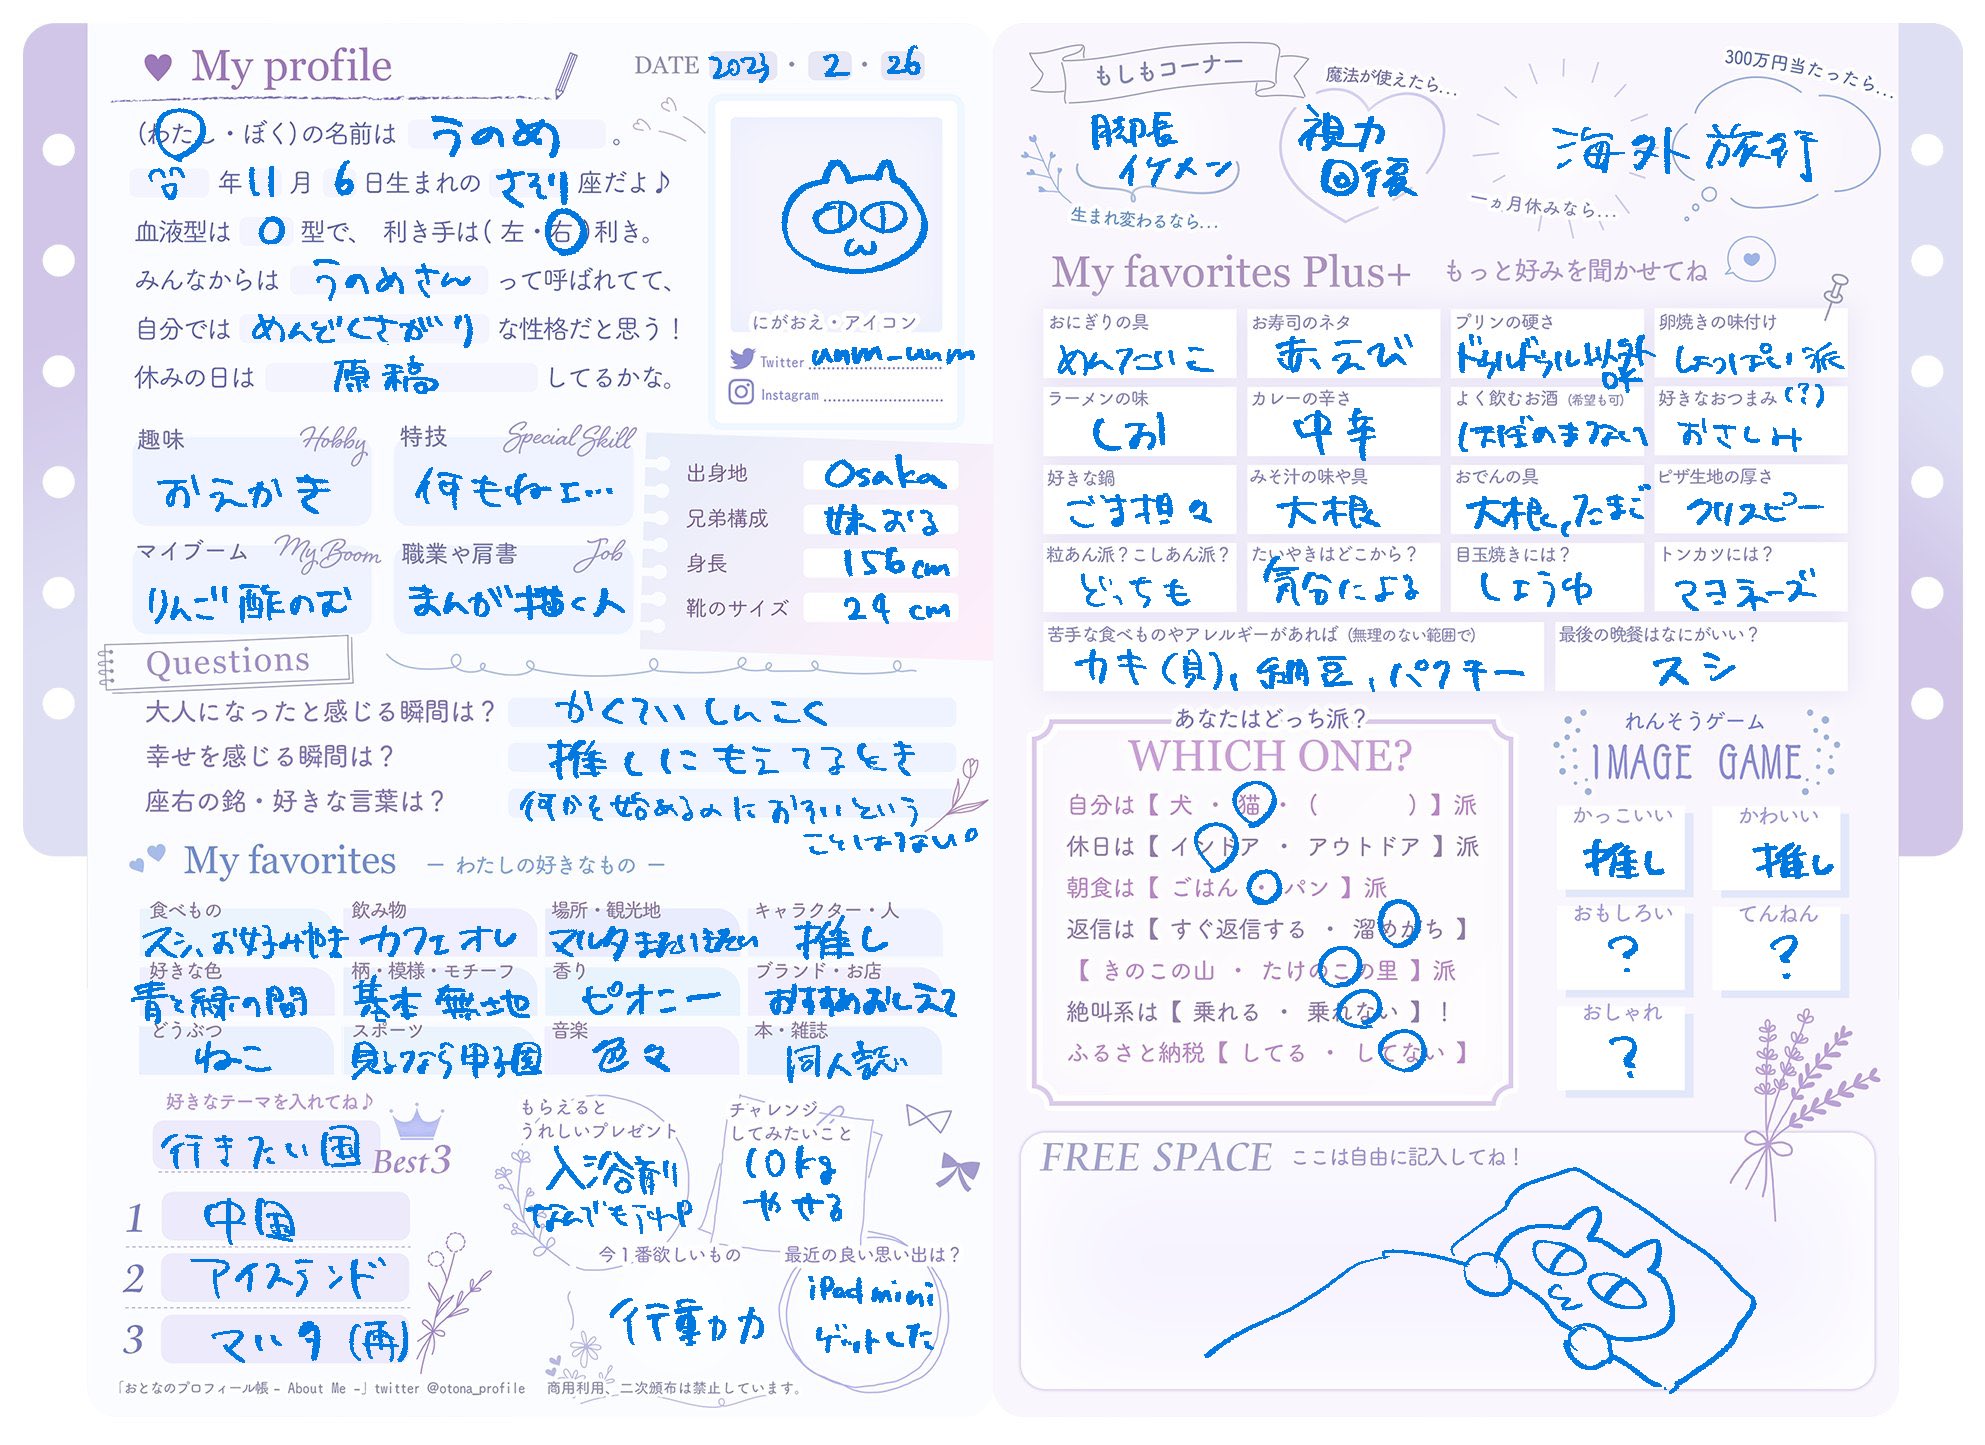 My profile
DATE 2023・2・26
(わたし・ぼく)の名前は うのめ 。
年 11 月 6 日生まれの さそり 座だよ♪
血液型は O 型で、 利き手は( 左・右 )利き。
みんなからは うのめさん って呼ばれてて、
自分では めんどくさがり な性格だと思う！
休みの日は 原稿 してるかな。
にがおえ・アイコン
Twitter unm_unm
Instagram
趣味 Hobby
おえかき
特技 Special Skill
何もねェ…
マイブーム My Boom
りんご酢のむ
職業や肩書 Job
まんが描く人
出身地 Osaka
兄弟構成 妹おる
身長 156cm
靴のサイズ 24 cm
Questions
大人になったと感じる瞬間は？ かくていしんこく
幸せを感じる瞬間は？ 推しにもえてるとき
座右の銘・好きな言葉は？ 何かを始めるのにおそいという
ことはない。
My favorites － わたしの好きなもの －
食べもの 飲み物 場所・観光地 キャラクター・人
スシ、お好みやき カフェオレ マルタ 推し
好きな色 柄・模様・モチーフ 香り ブランド・お店
青と緑の間 基本無地 ピオニー おすすめおしえて
どうぶつ スポーツ 音楽 本・雑誌
ねこ 見るなら甲子園 色々 同人誌
好きなテーマを入れてね♪
行きたい国 Best3
1 中国
2 アイスランド
3 マルタ (再)
もらえると
うれしいプレゼント
入浴剤
なんでもうれP
チャレンジ
してみたいこと
10kg
やせる
今1番欲しいもの
行動力
最近の良い思い出は？
iPad mini
ゲットした
「おとなのプロフィール帳 - About Me -」twitter @otona_profile 商用利用、二次頒布は禁止しています。
もしもコーナー
脚長
イケメン
生まれ変わるなら...
魔法が使えたら...
視力
回復
300万円当たったら...
海外旅行
一ヵ月休みなら...
My favorites Plus+ もっと好みを聞かせてね
おにぎりの具 お寿司のネタ プリンの硬さ 卵焼きの味付け
めんたいこ あ、えび ドゥルドゥル以外OK しょっぱい派
ラーメンの味 カレーの辛さ よく飲むお酒 (希望も可) 好きなおつまみ (?)
しお！ 中辛 ほぼのまない おさしみ
好きな鍋 みそ汁の味や具 おでんの具 ピザ生地の厚さ
ごま担々 大根 大根、たまご クリスピー
粒あん派？こしあん派？ たいやきはどこから？ 目玉焼きには？ トンカツには？
どっちも 気分による しょうゆ マヨネーズ
苦手な食べものやアレルギーがあれば (無理のない範囲で) 最後の晩餐はなにがいい？
カキ(貝)、納豆、パクチー スシ
あなたはどっち派？
WHICH ONE?
自分は【 犬 ・ 猫 ・ ( ) 】派
休日は【 インドア ・ アウトドア 】派
朝食は【 ごはん ・ パン 】派
返信は【 すぐ返信する ・ 溜めがち 】
【 きのこの山 ・ たけのこの里 】派
絶叫系は【 乗れる ・ 乗れない 】！
ふるさと納税【 してる ・ してない 】
れんそうゲーム
IMAGE GAME
かっこいい かわいい
推し 推し
おもしろい てんねん
? ?
おしゃれ
?
FREE SPACE ここは自由に記入してね！